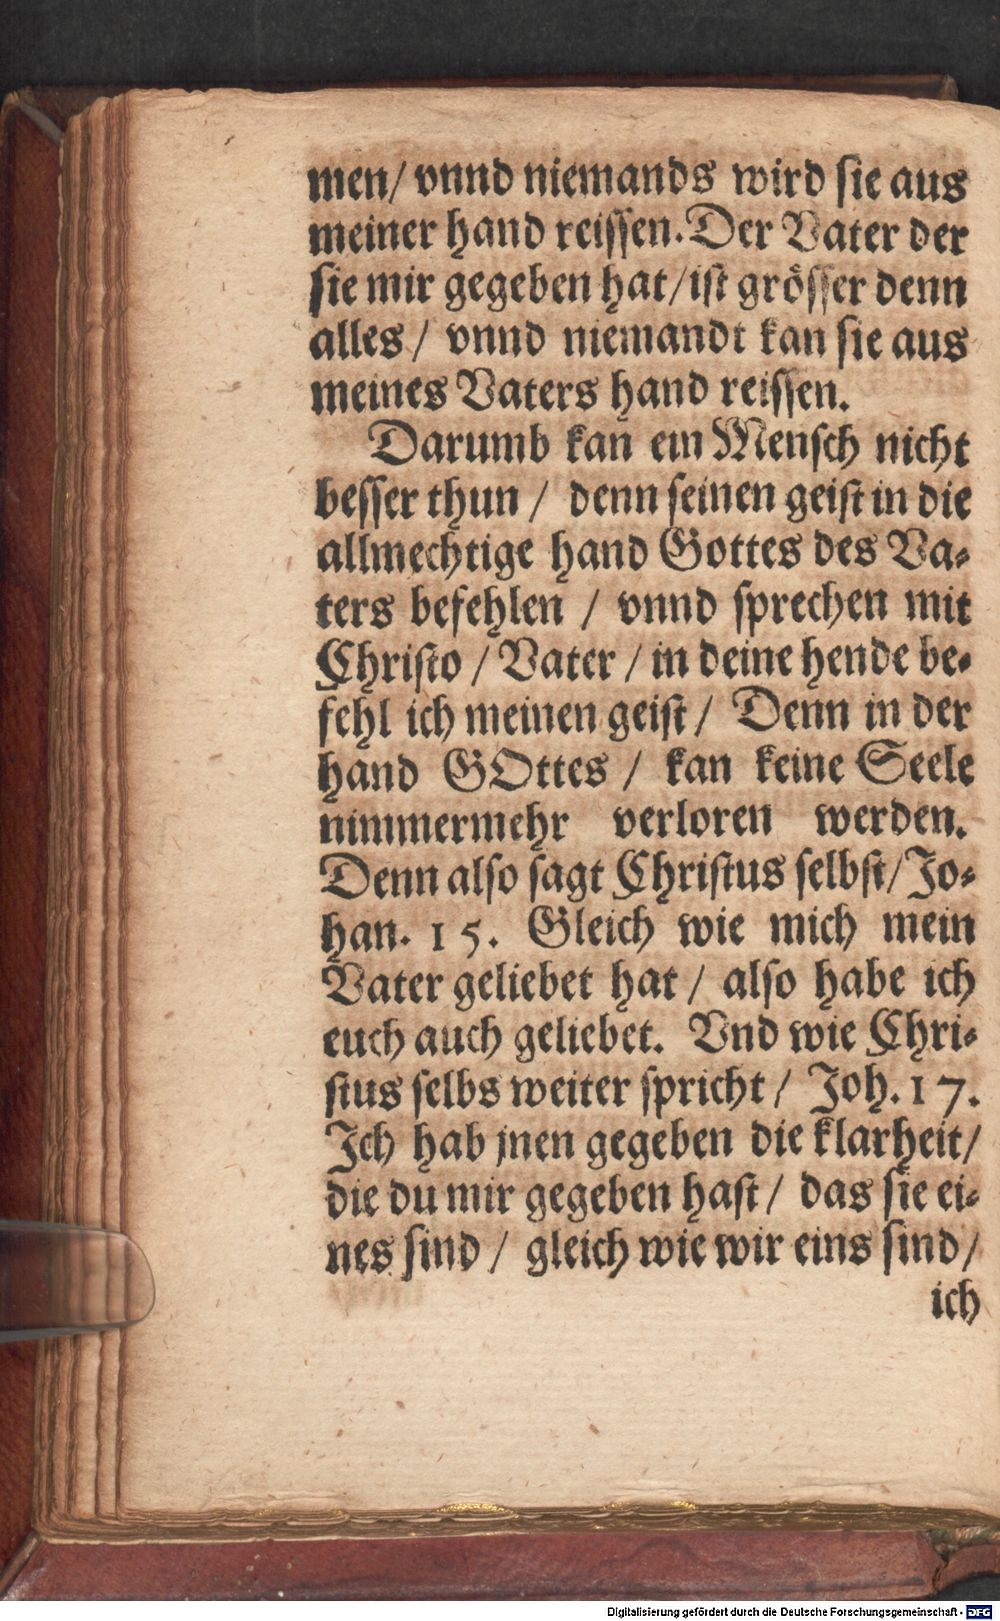 men/ vnnd niemands wird sie aus
meiner hand reissen. Der Vater der
sie mir gegeben hat/ ist grösser denn
alles/ vnnd niemandt kan sie aus
meines Vaters hand reissen.
Darumb kan ein Mensch nicht
besser thun / denn seinen geist in die
allmechtige hand Gottes des Va-
ters befehlen / vnnd sprechen mit
Christo / Vater / in deine hende be-
fehl ich meinen geist / Denn in der
hand GOttes / kan keine Seele
nimmermehr verloren werden.
Denn also sagt Christus selbst/ Jo-
han. 15. Gleich wie mich mein
Vater geliebet hat / also habe ich
euch auch geliebet. Vnd wie Chri-
stus selbs weiter spricht / Joh. 17.
Ich hab jnen gegeben die klarheit/
die du mir gegeben hast / das sie ei-
nes sind / gleich wie wir eins sind /
ich
Digitalisierung gefördert durch die Deutsche Forschungsgemeinschaft - DFG